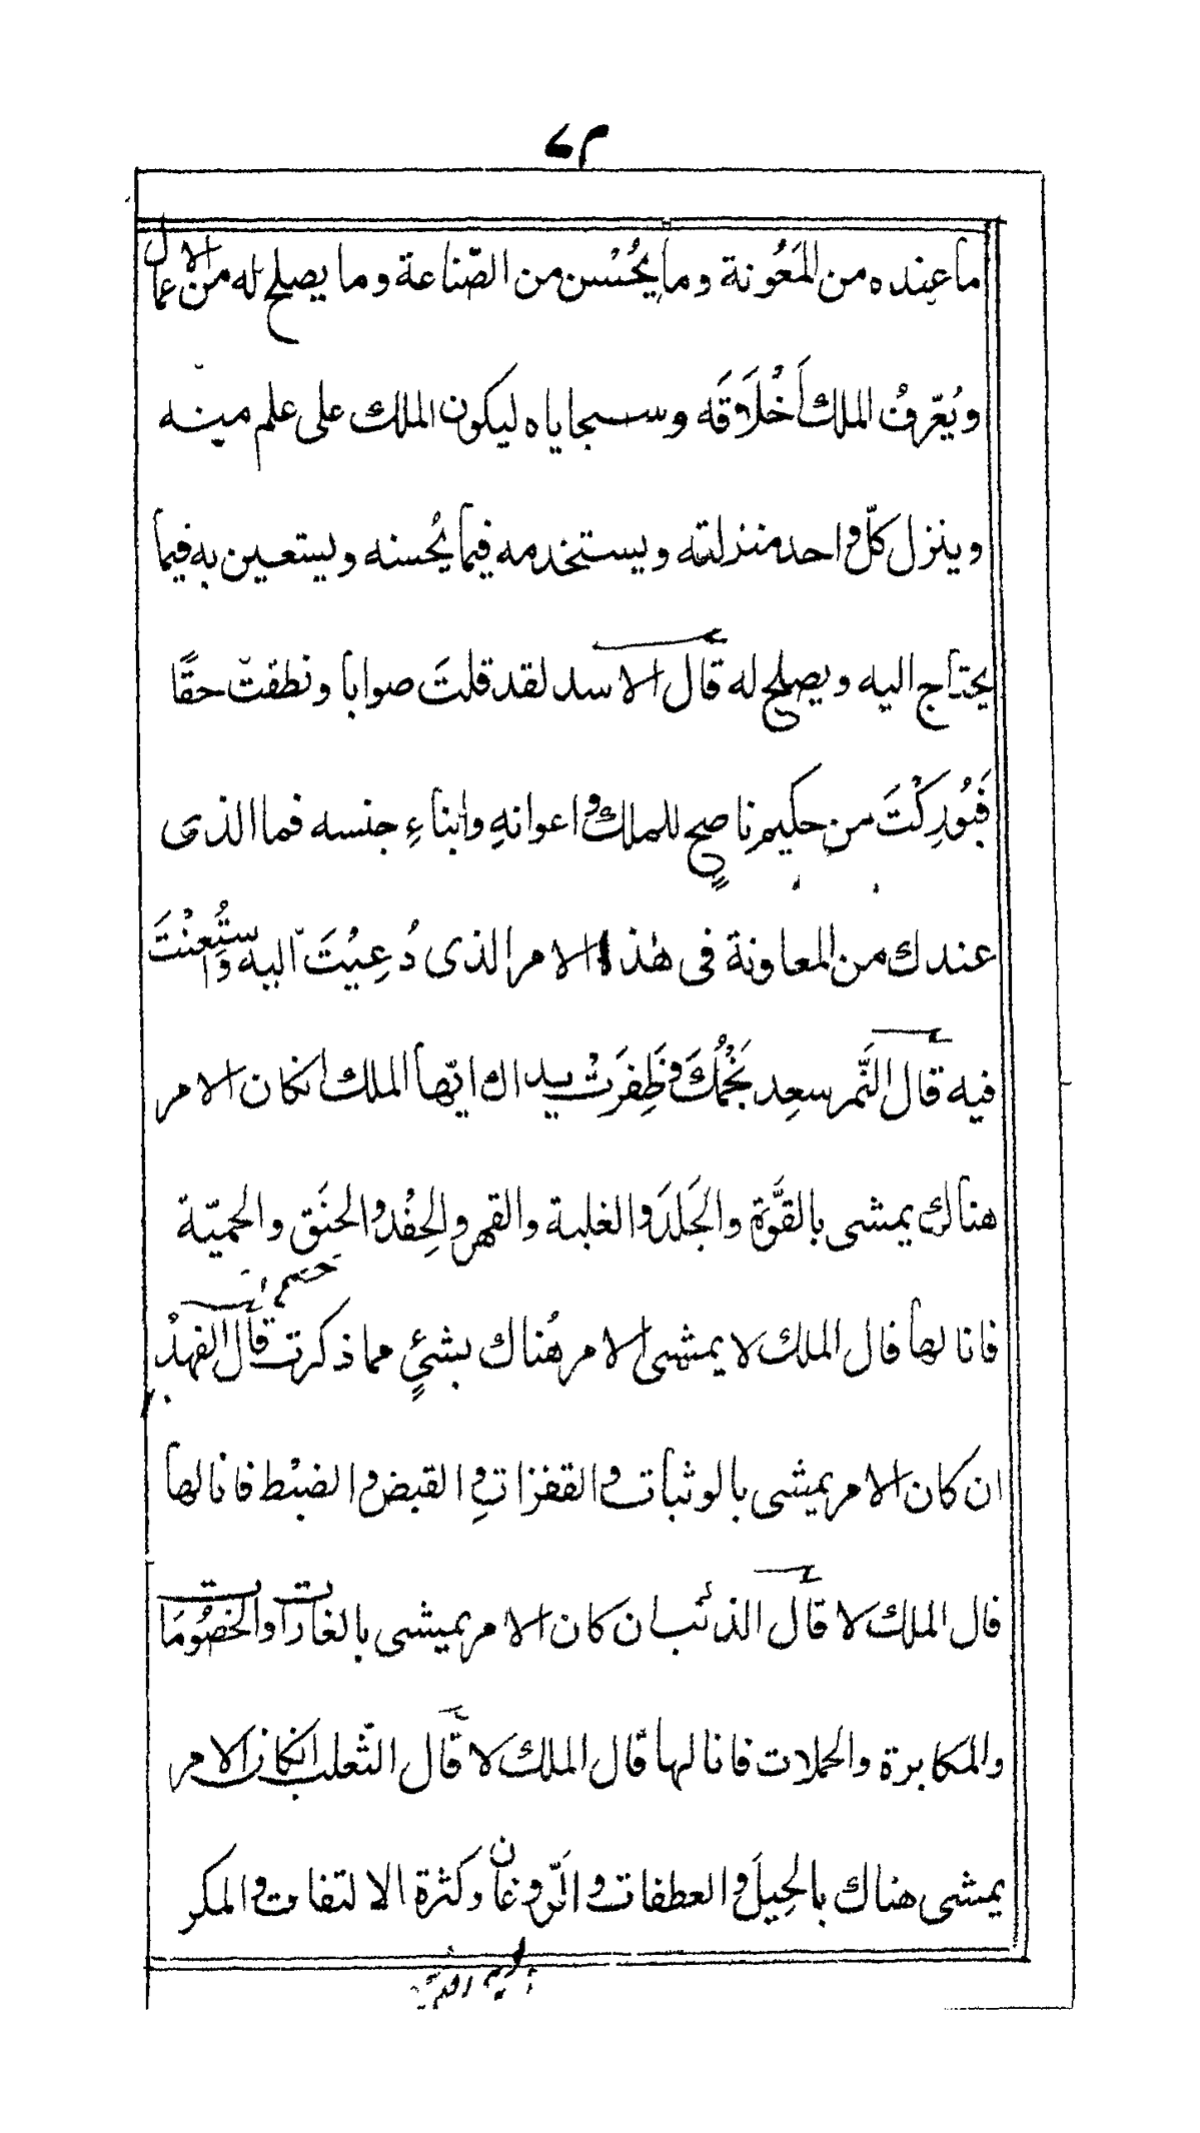 ما عنده من المَعُونة وما يُحْسن من الصّناعة وما يصلح له من الاعمال
ويُعرّفُ الملك اَخْلَاقَه وسجاياه ليكون الملك على علم مينه
وينزل كلّ واحد منزلته ويستخدمه فيما يُحسنه ويستعين به فيما
يحتاج اليه ويصلح له قال الاسد لقد قلتَ صوابا ونطقتَ حقًا
فَبُورِكْتَ من حكيم ناصحٍ للملك واعوانهِ وابناءِ جنسه فما الذى
عندك من المعاونة فى هٰذا الامر الذى دُعِيْتَ اليه واستُعِنْتَ
فيه قال النَّمر سعِد نَجْمُكَ وظَفِرَتْ يداك ايّها الملك انكان الامر
هناك يمشى بالقوَّة والجَلَد والغلبة والقهر والحِقْد والحنَق والحميّة
فانا لها قال الملك لا يمشى الامر هُناك بشئٍ مما ذكرت قال الفهدْ
ان كان الامر يمشى بالوثبات والقفزاتِ والقبض والضبْط فانا لها
قال الملك لا قال الذئب ان كان الامر يميشى بالغارات والخصُومَات
والمكابرة والحملات فانا لها قال الملك لا قال الثّعلب انكان الامر
يمشى هناك بالحِيلَ والعطفات والرّوغان وكثرة الالتفات والمكر